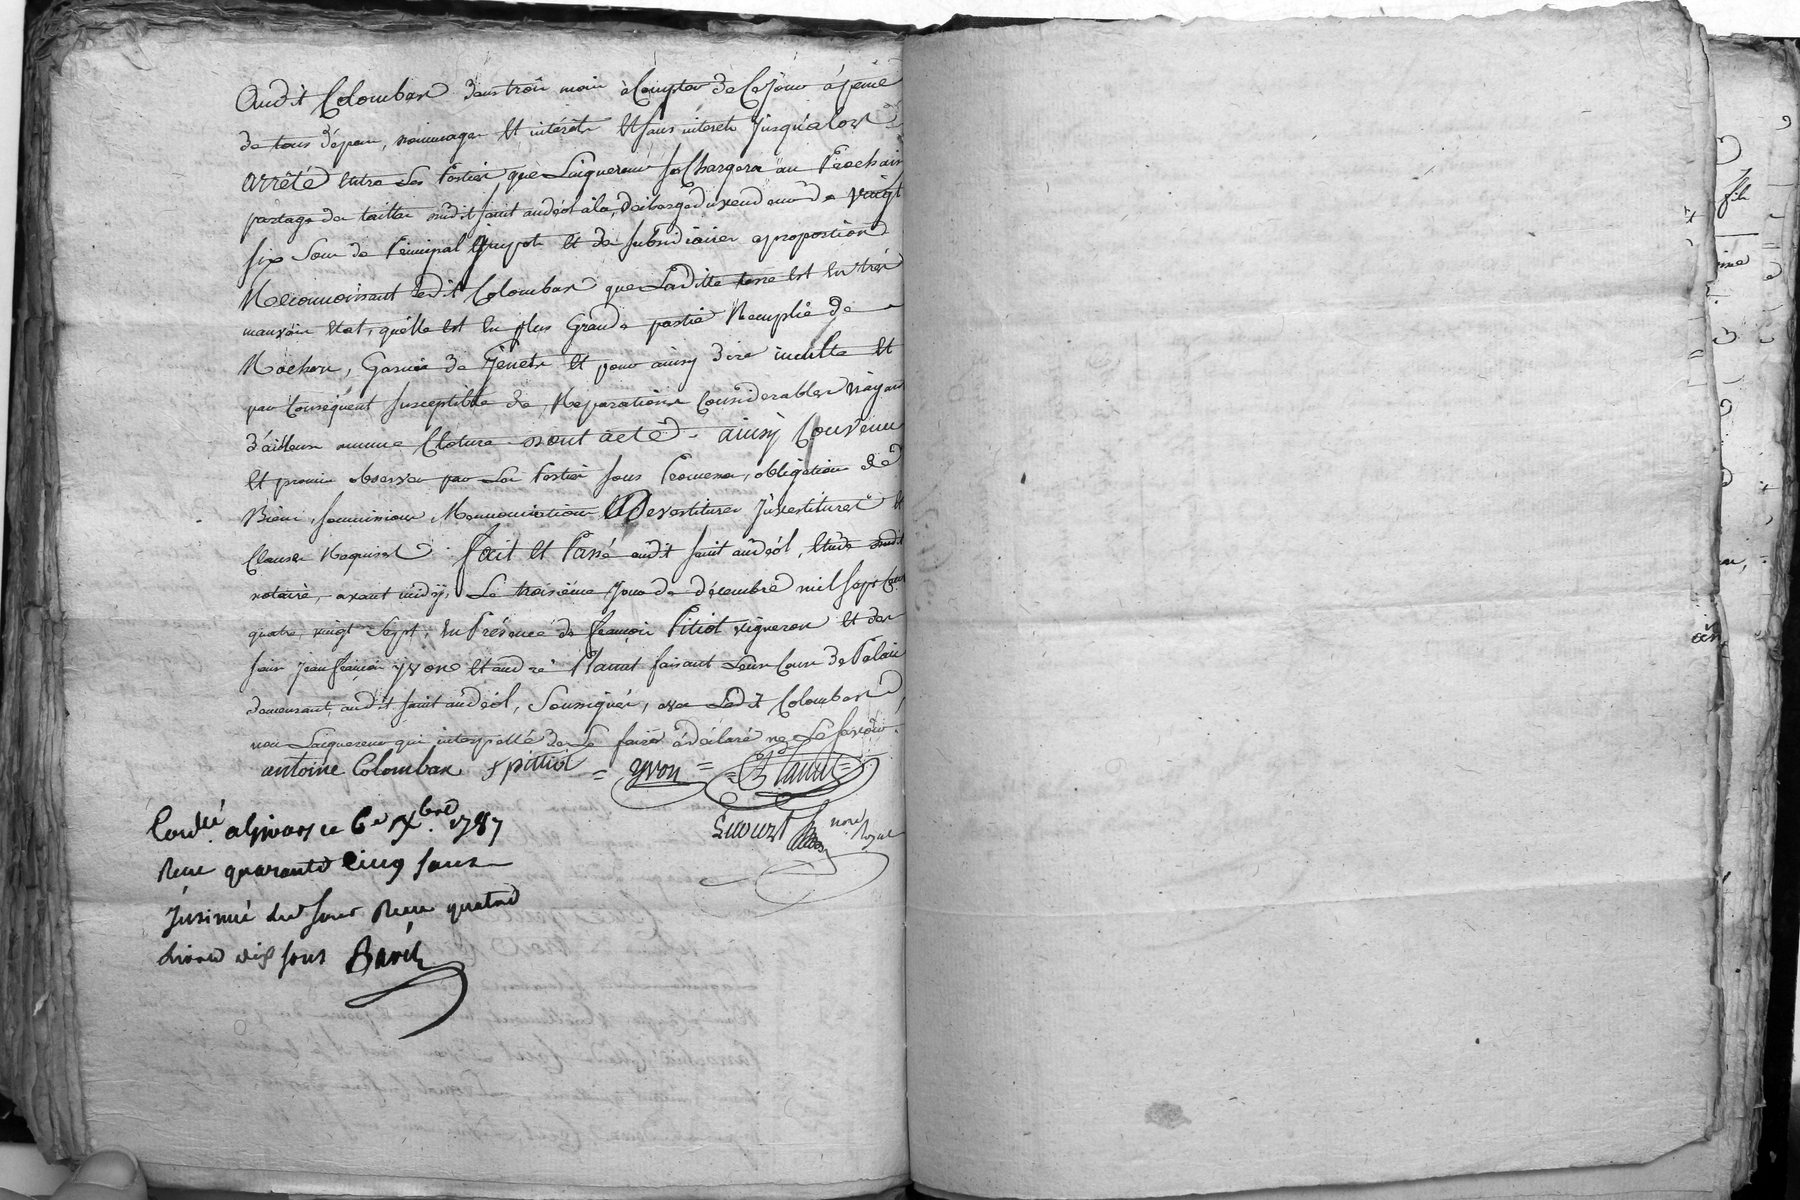 Audit Colomban dans trois mois à Compter de Ce Jour à peine
de tous dépens, dommages Et intérêts Et sans interets Jusqu'alors
arrêté Entre Les Parties que L'aquereur se Chargera au Prochain
partage de tailles dudit saint andéol à la décharge du vendeur de vingt
six Sous de Principal Et de subsidiaires a proportion
Reconnoissant ledit Colomban que Laditte terre Est En très
mauvais Etat, quélle Est En plus Grande partie Remplie de
Rochers, Garnie de Genets Et pour ainsy dire inculte Et
par Conséquent susceptible de Reparations Considerables n'ayant
d'ailleurs aucune Cloture dont acte. ainsy Convenu
Et promis observer par Les Parties sous Promesses, obligation de
Biens, soumissions, Rennonciations Devestitures Investitures Et
Clauses Requises. fait Et Passé audit saint andéol, Etude dudit
notaire, avant midy, Le troisième Jour de décembre mil sept Cent
quatre vingt Sept, En Présence de françois Pitiot vigneron Et des
sieurs Jean françois yvon Et andré Planut faisant Leur Cours de Palais
demeurant audit saint andéol, Soussignés, avec Ledit Colomban
non L'aquereur qui interpellé de Le faire a déclaré ne Le savoir.
antoine Colomban f pittiot = yvon = = Planut =
nore royal
Conllé a Givors ce 6e Xbre 1787
Recu quarante Cinq sous
Insinué led Jour Recu quatre
Livres dix sous